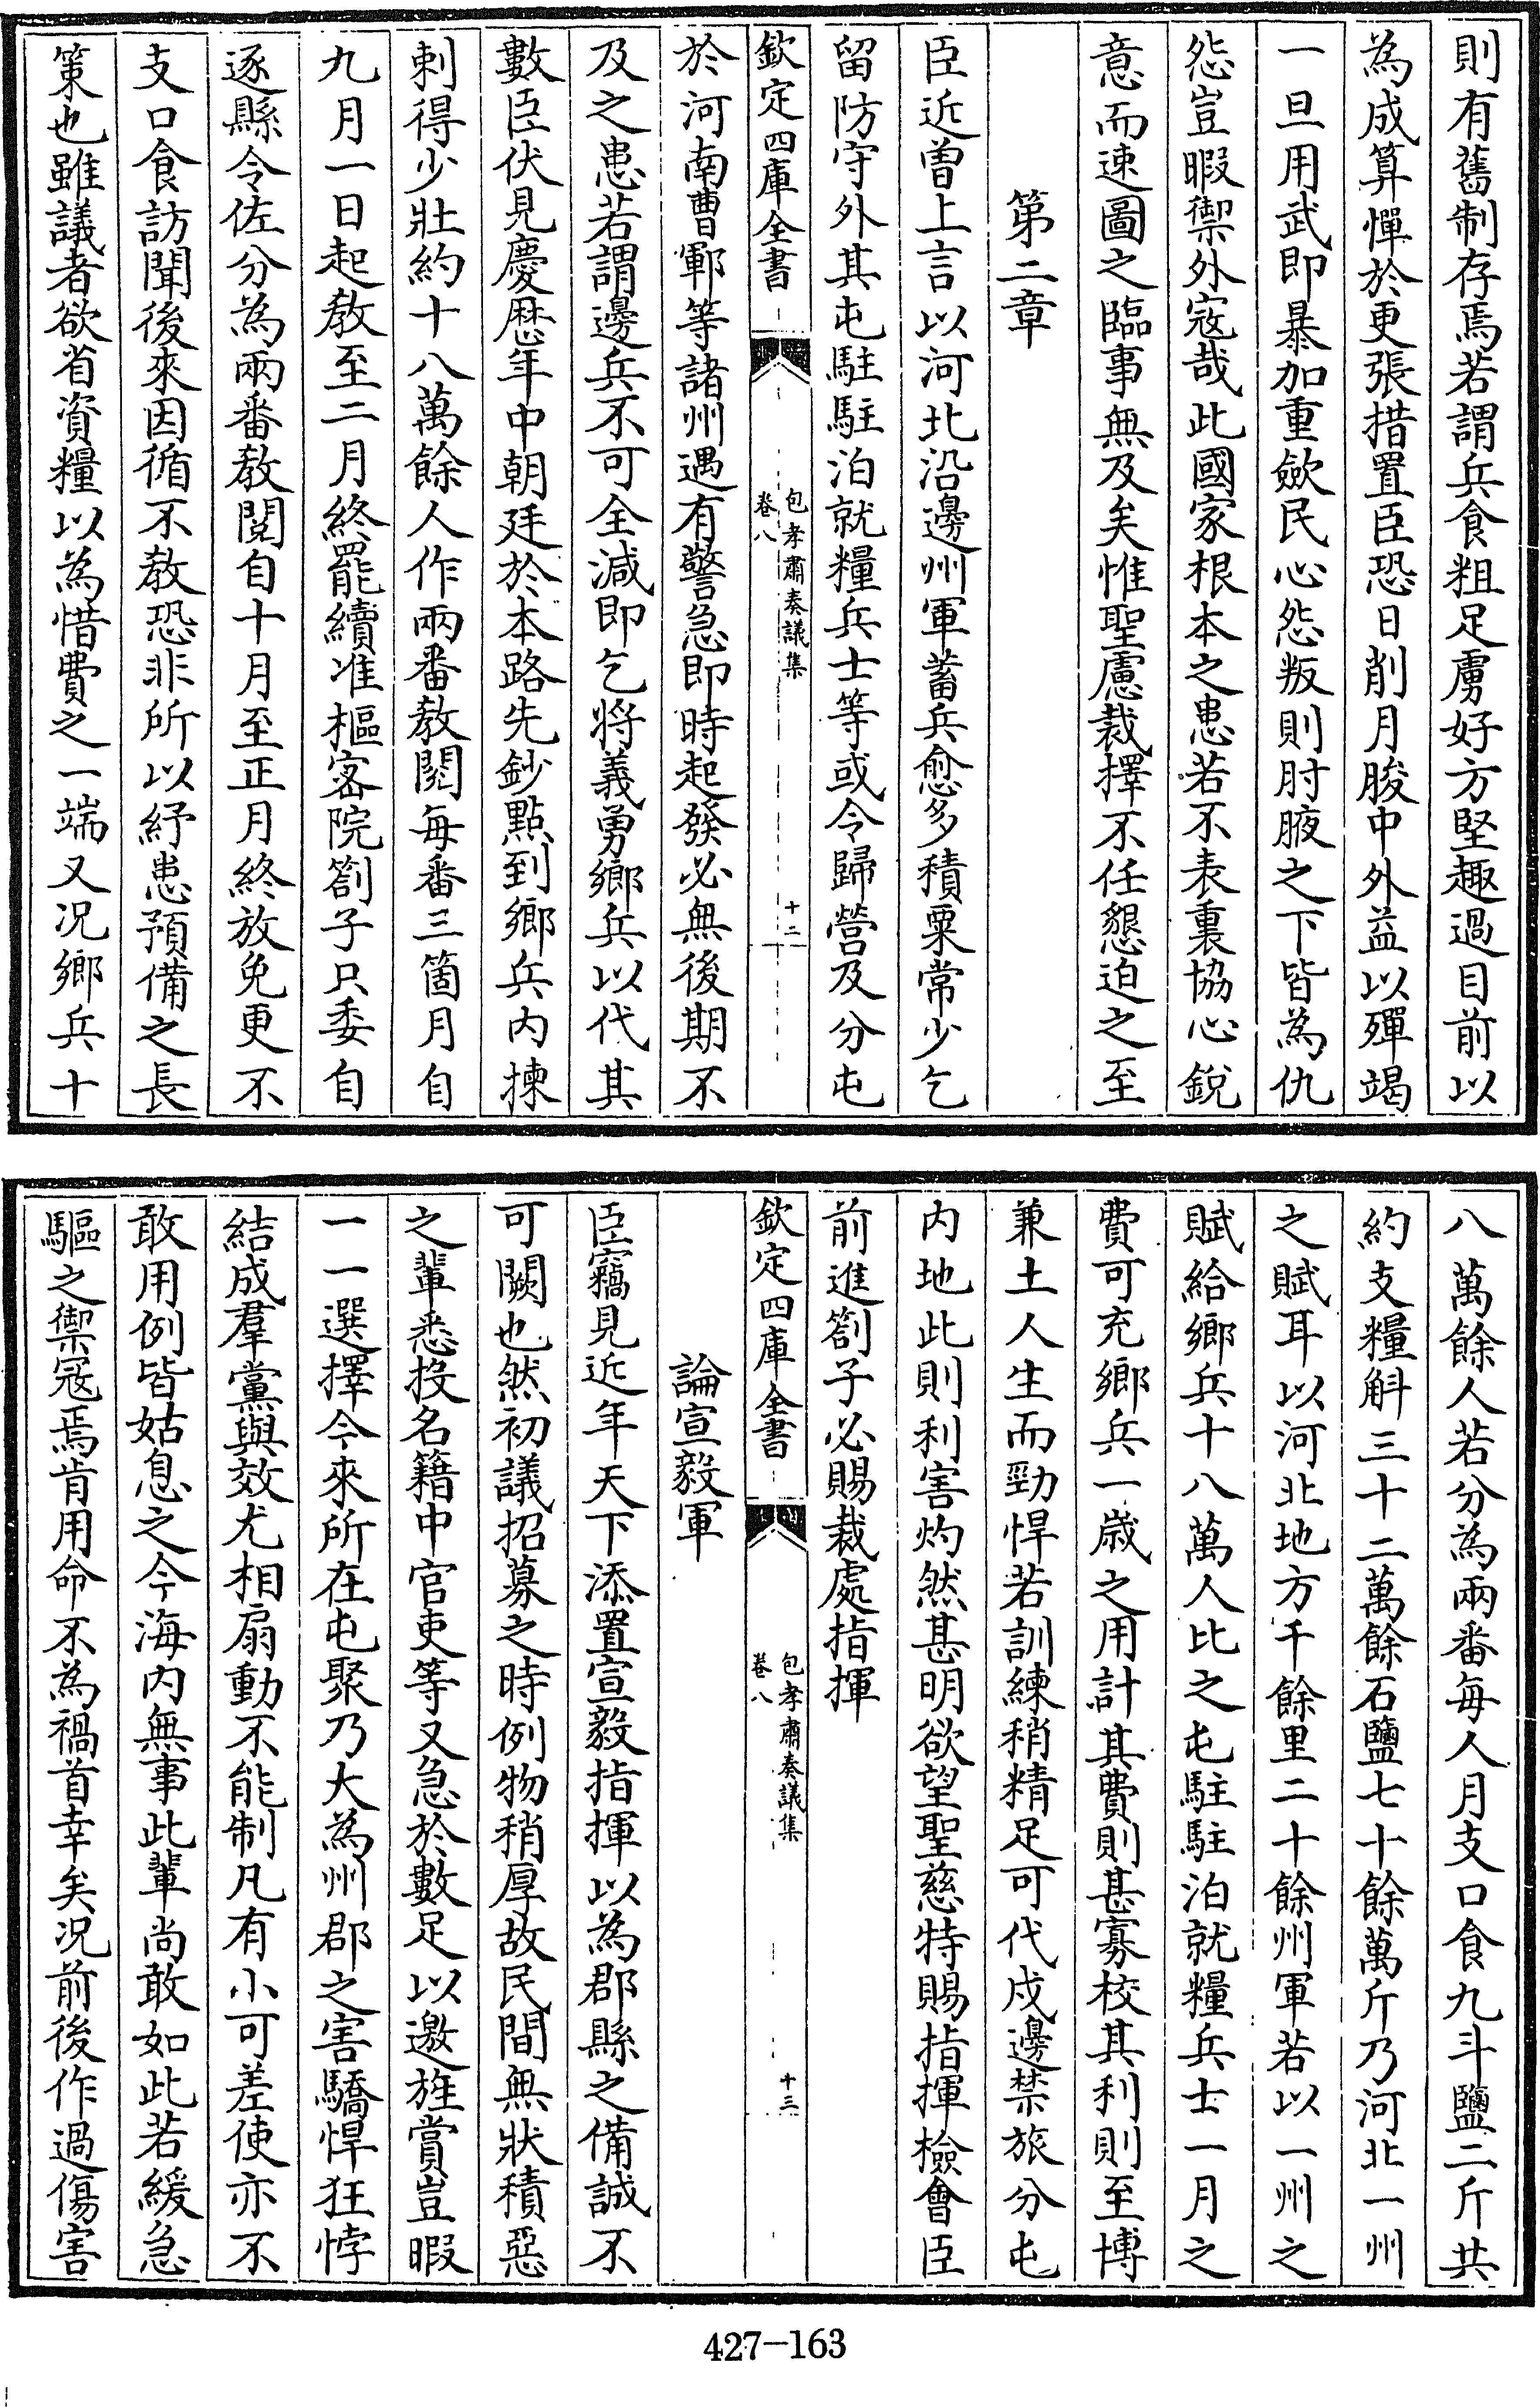 則有舊制存焉若謂兵食粗足虜好方堅趣過目前以
為成算憚於更張措置臣恐日削月朘中外益以殫竭
一旦用武即暴加重歛民心怨叛則肘腋之下皆為仇
怨豈暇禦外寇哉此國家根本之患若不表裏協心銳
意而速圖之臨事無及矣惟聖慮裁擇不任懇迫之至
第二章
臣近曾上言以河北沿邊州軍蓄兵愈多積粟常少乞
留防守外其屯駐駐泊就糧兵士等或令歸營及分屯
欽定四庫全書
包孝肅奏議集
卷八
十二
於河南曹鄆等諸州遇有警急即時起發必無後期不
及之患若謂邊兵不可全減即乞將義勇鄉兵以代其
數臣伏見慶歷年中朝廷於本路先鈔點到鄉兵內揀
刺得少壯約十八萬餘人作兩番教閱每番三箇月自
九月一日起教至二月終罷續准樞宻院劄子只委自
逐縣令佐分為兩番教閱自十月至正月終放免更不
支口食訪聞後來因循不教恐非所以紓患預備之長
策也雖議者欲省資糧以為惜費之一端又况鄉兵十
八萬餘人若分為兩番每人月支口食九斗鹽二斤共
約支糧斛三十二萬餘石鹽七十餘萬斤乃河北一州
之賦耳以河北地方千餘里二十餘州軍若以一州之
賦給鄉兵十八萬人比之屯駐駐泊就糧兵士一月之
費可充鄉兵一歲之用計其費則甚寡校其利則至博
兼土人生而勁悍若訓練稍精足可代戍邊禁旅分屯
内地此則利害灼然甚明欲望聖慈特賜指揮檢會臣
前進劄子必賜裁處指揮
欽定四庫全書
包孝肅奏議集
卷八
十三
論宣毅軍
臣竊見近年天下添置宣毅指揮以為郡縣之備誠不
可闕也然初議招募之時例物稍厚故民間無狀積惡
之輩悉投名籍中官吏等又急於數足以邀旌賞豈暇
一一選擇今來所在屯聚乃大為州郡之害驕悍狂悖
結成羣黨與效尤相扇動不能制凡有小可差使亦不
敢用例皆姑息之今海内無事此輩尚敢如此若緩急
驅之禦冦焉肯用命不為禍首幸矣况前後作過傷害
427-163